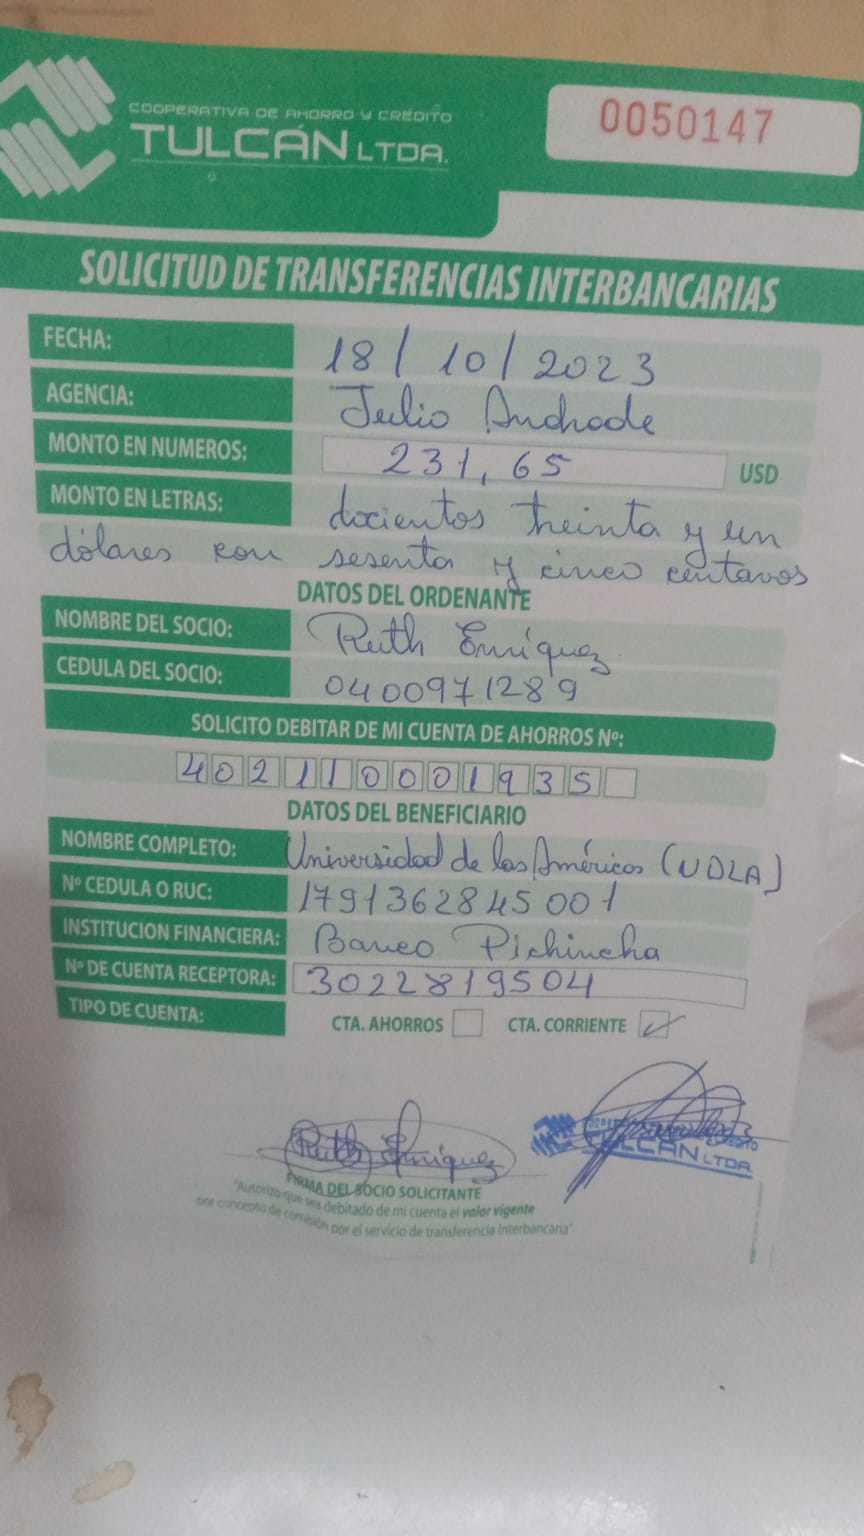 COOPERATIVA DE AHORRO Y CRÉDITO
TULCÁN LTDA.
0050147
SOLICITUD DE TRANSFERENCIAS INTERBANCARIAS
FECHA: 18/10/2023
AGENCIA: Julio Andrade
MONTO EN NUMEROS: 231,65 USD
MONTO EN LETRAS: docientos treinta y un
dólares con sesenta y cinco centavos
DATOS DEL ORDENANTE
NOMBRE DEL SOCIO: Ruth Enríquez
CEDULA DEL SOCIO: 0400971289
SOLICITO DEBITAR DE MI CUENTA DE AHORROS Nº:
402110001935
DATOS DEL BENEFICIARIO
NOMBRE COMPLETO: Universidad de las Américas (UDLA)
Nº CEDULA O RUC: 1791362845001
INSTITUCION FINANCIERA: Banco Pichincha
Nº DE CUENTA RECEPTORA: 3022819504
TIPO DE CUENTA: CTA. AHORROS CTA. CORRIENTE
Ruth Enríquez
TULCÁN LTDA.
FIRMA DEL SOCIO SOLICITANTE
"Autorizo que sea debitado de mi cuenta el valor vigente
por concepto de comisión por el servicio de transferencia interbancaria"